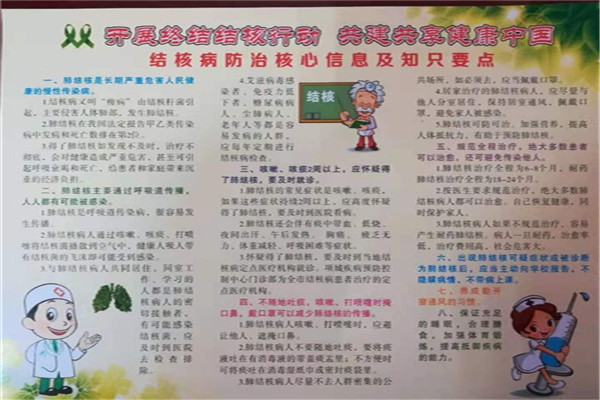 开展终结结核行动 共建共享健康中国
结核病防治核心信息及知识要点
一、肺结核是长期严重危害人民健
康的慢性传染病。
1.结核病又叫“痨病”由结核杆菌引
起，主要侵害人体肺部，发生肺结核。
2.肺结核在我国法定报告甲乙类传染
病中发病和死亡数排在第2位。
3.得了肺结核如发现不及时，治疗不
彻底，会对健康造成严重危害，甚至可引
起呼吸衰竭和死亡，给患者和家庭带来沉
重的经济负担。
二、肺结核主要通过呼吸道传播，
人人都有可能被感染。
1.肺结核是呼吸道传染病，很容易发
生传播。
2.肺结核病人通过咳嗽、咳痰、打喷
嚏将结核菌播散到空气中，健康人吸入带
有结核菌的飞沫即可能受到感染。
3.与肺结核病人共同居住，同室工
作、学习的
人都是肺结
核病人的密
切接触者，
有可能感染
结核菌，应
及时到医院
去检查排
除。
4.艾滋病毒感
染者、免疫力低
下者、糖尿病病
人、尘肺病人、
老年人等都是容
易发病的人群，
应每年定期进行
结核病检查。
结核
三、咳嗽、咳痰2周以上，应怀疑得
了肺结核，要及时就诊。
1.肺结核的常见症状是咳嗽、咳痰，
如果这些症状持续2周以上，应高度怀疑
得了肺结核，要及时到医院看病。
2.肺结核还会伴有痰中带血、低烧、
夜间出汗、午后发热、胸痛、疲乏无
力、体重减轻、呼吸困难等症状。
3.怀疑得了肺结核，要及时到当地结
核病定点医疗机构就诊。项城疾病预防控
制中心门诊部为全市结核病患者治疗的定
点医疗机构。
四、不随地吐痰，咳嗽、打喷嚏时掩
口鼻，戴口罩可以减少肺结核的传播。
1.肺结核病人咳嗽、打喷嚏时，应避
让他人、遮掩口鼻。
2.肺结核病人不要随地吐痰，要将痰
液吐在有消毒液的带盖痰盂里；不方便时
可将痰吐在消毒湿纸巾或密封痰袋里。
3.肺结核病人尽量不去人群密集的公
共场所，如必须去，应当佩戴口罩。
4.居家治疗的肺结核病人，应尽量与
他人分室居住，保持居室通风，佩戴口
罩，避免家人被感染。
5.肺结核可防可治。加强营养，提高
人体抵抗力，有助于预防肺结核。
五、规范全程治疗，绝大多数患者
可以治愈，还可避免传染他人。
1.肺结核治疗全程为6-8个月，耐药
肺结核治疗全程为18-24个月。
2.按医生要求规范治疗，绝大多数肺
结核病人都可以治愈，自己恢复健康，同
时保护家人。
3.肺结核病人如果不规范治疗，容易
产生耐药肺结核。病人一旦耐药，治愈率
低，治疗费用高，社会危害大。
六、出现肺结核可疑症状或被诊断
为肺结核后，应当主动向学校报告，不
隐瞒病情、不带病上课。
七、养成勤开
窗通风的习惯。
八、保证充足
的睡眠，合理膳
食，加强体育锻
炼，提高抵御疾病
的能力。